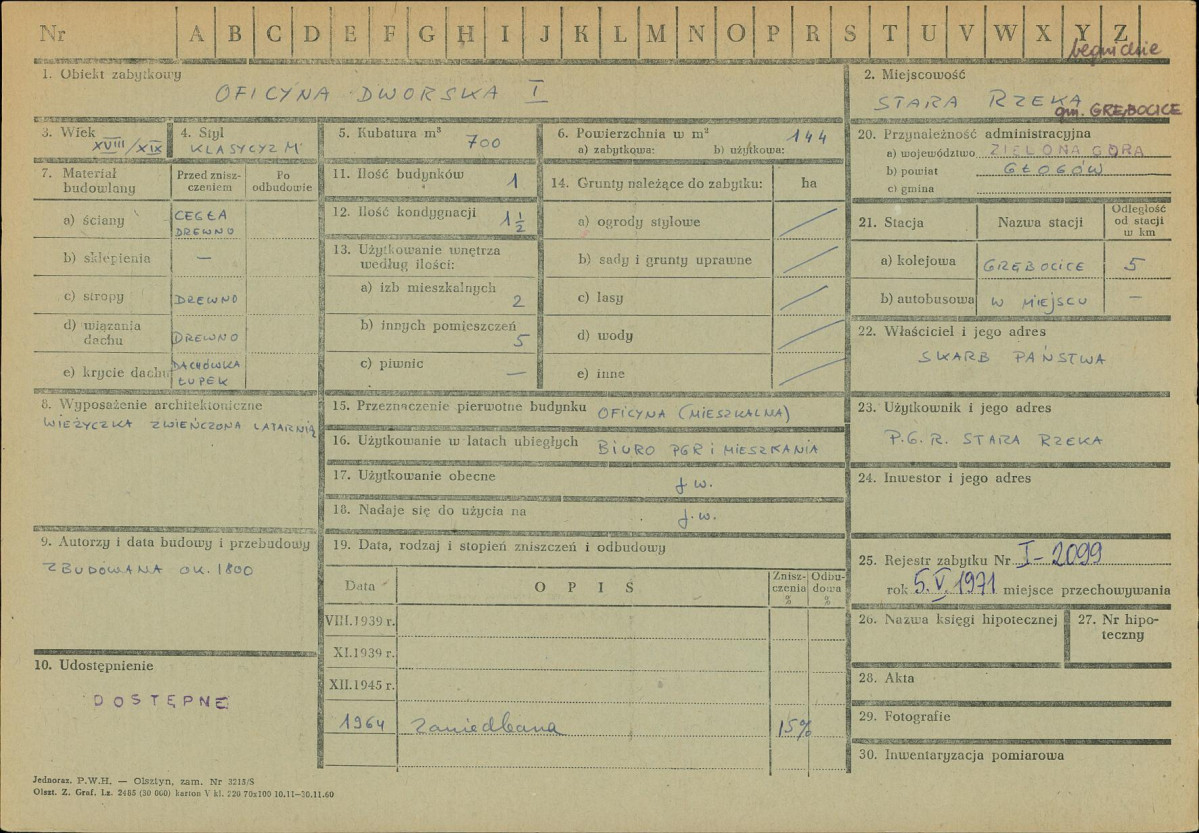 Nr A B C D E F G H I J K L M N O P R S T U V W X Y Z
1. Obiekt zabytkowy
OFICYNA DWORSKA I
2. Miejscowość
STARA RZEKA
gm. GRĘBOCICE
3. Wiek
XVIII/XIX
4. Styl
KLASYCYZM
5. Kubatura m³
700
6. Powierzchnia w m²
144
a) zabytkowa: b) użytkowa:
7. Materiał budowlany
Przed znisz-
czeniem
Po
odbudowie
a) ściany
CEGŁA
DREWNO
b) sklepienia
—
c) stropy
DREWNO
d) wiązania
dachu
DREWNO
e) krycie dachu
DACHÓWKA
ŁUPEK
8. Wyposażenie architektoniczne
WIEŻYCZKA ZWIEŃCZONA LATARNIĄ
9. Autorzy i data budowy i przebudowy
ZBUDOWANA OK. 1800
10. Udostępnienie
DOSTĘPNE
11. Ilość budynków
1
12. Ilość kondygnacji
1 1/2
13. Użytkowanie wnętrza
według ilości:
a) izb mieszkalnych
2
b) innych pomieszczeń
5
c) piwnic
—
14. Grunty należące do zabytku: ha
a) ogrody stylowe
b) sady i grunty uprawne
c) lasy
d) wody
e) inne
15. Przeznaczenie pierwotne budynku OFICYNA (MIESZKALNA)
16. Użytkowanie w latach ubiegłych BIURO PGR I MIESZKANIA
17. Użytkowanie obecne j.w.
18. Nadaje się do użycia na j.w.
19. Data, rodzaj i stopień zniszczeń i odbudowy
Data
OPIS
Znisz-
czenia
%
Odbu-
dowa
%
VIII.1939 r.
XI.1939 r.
XII.1945 r.
1964 zaniedbana 15%
20. Przynależność administracyjna
a) województwo ZIELONA GÓRA
b) powiat GŁOGÓW
c) gmina
21. Stacja
Nazwa stacji
Odległość
od stacji
w km
a) kolejowa GRĘBOCICE 5
b) autobusowa W MIEJSCU —
22. Właściciel i jego adres
SKARB PAŃSTWA
23. Użytkownik i jego adres
P.G.R. STARA RZEKA
24. Inwestor i jego adres
25. Rejestr zabytku Nr I-2099
rok 5.V.1971 miejsce przechowywania
26. Nazwa księgi hipotecznej
27. Nr hipo-
teczny
28. Akta
29. Fotografie
30. Inwentaryzacja pomiarowa
Jednoraz. P.W.H. — Olsztyn, zam. Nr 3215/S
Olszt. Z. Graf. Lz. 2485 (30 000) karton V kl. 220 70x100 10.11—30.11.60